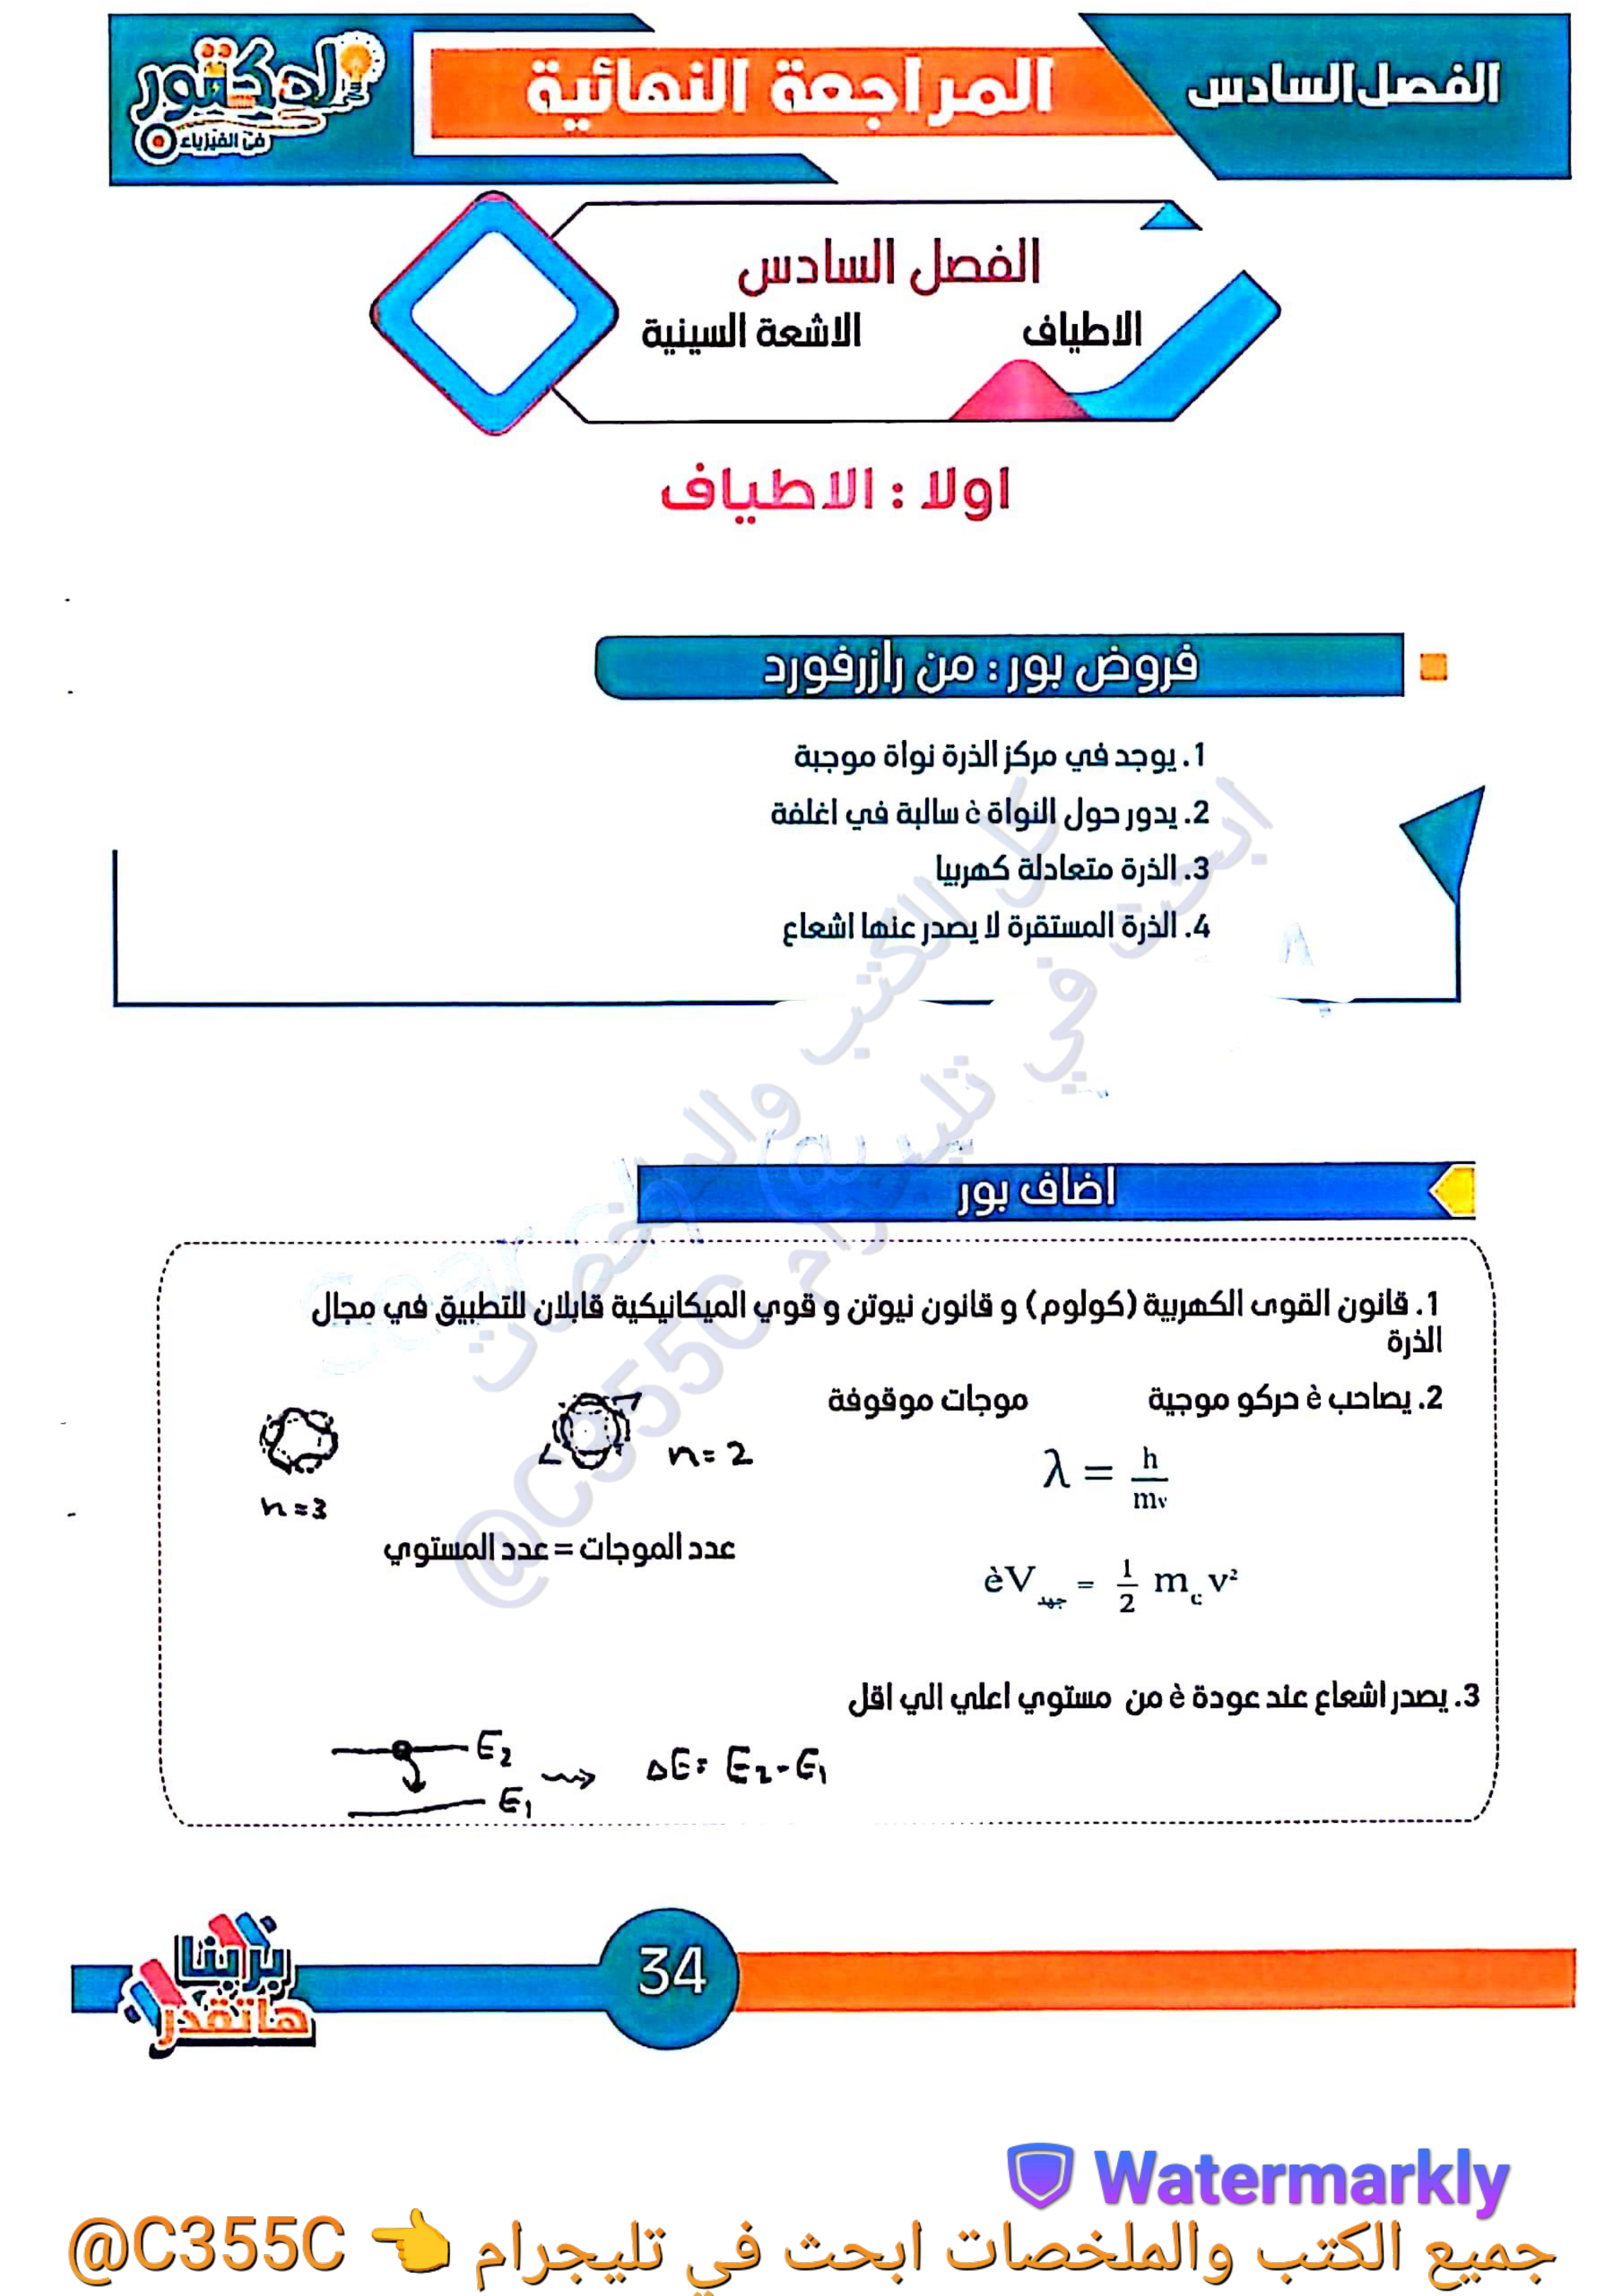 الفصل السادس
المراجعة النهائية
الدكتور
في الفيزياء
الفصل السادس
الاطياف الاشعة السينية
اولا : الاطياف
فروض بور : من رازرفورد
1. يوجد في مركز الذرة نواة موجبة
2. يدور حول النواة è سالبة في اغلفة
3. الذرة متعادلة كهربيا
4. الذرة المستقرة لا يصدر عنها اشعاع
اضاف بور
1. قانون القوى الكهربية (كولوم) و قانون نيوتن و قوي الميكانيكية قابلان للتطبيق في مجال
الذرة
2. يصاحب è حركو موجية موجات موقوفة
n = 2
λ = h / mv
n = 3
عدد الموجات = عدد المستوي
èV جهد = 1/2 m c v²
3. يصدر اشعاع عند عودة è من مستوي اعلي الي اقل
E2
ΔE = E2 - E1
E1
34
بربنا
هاتقدر
كل الكتب والملخصات
ابحث في تليجرام
@C355C
Watermarkly
جميع الكتب والملخصات ابحث في تليجرام 👈 @C355C